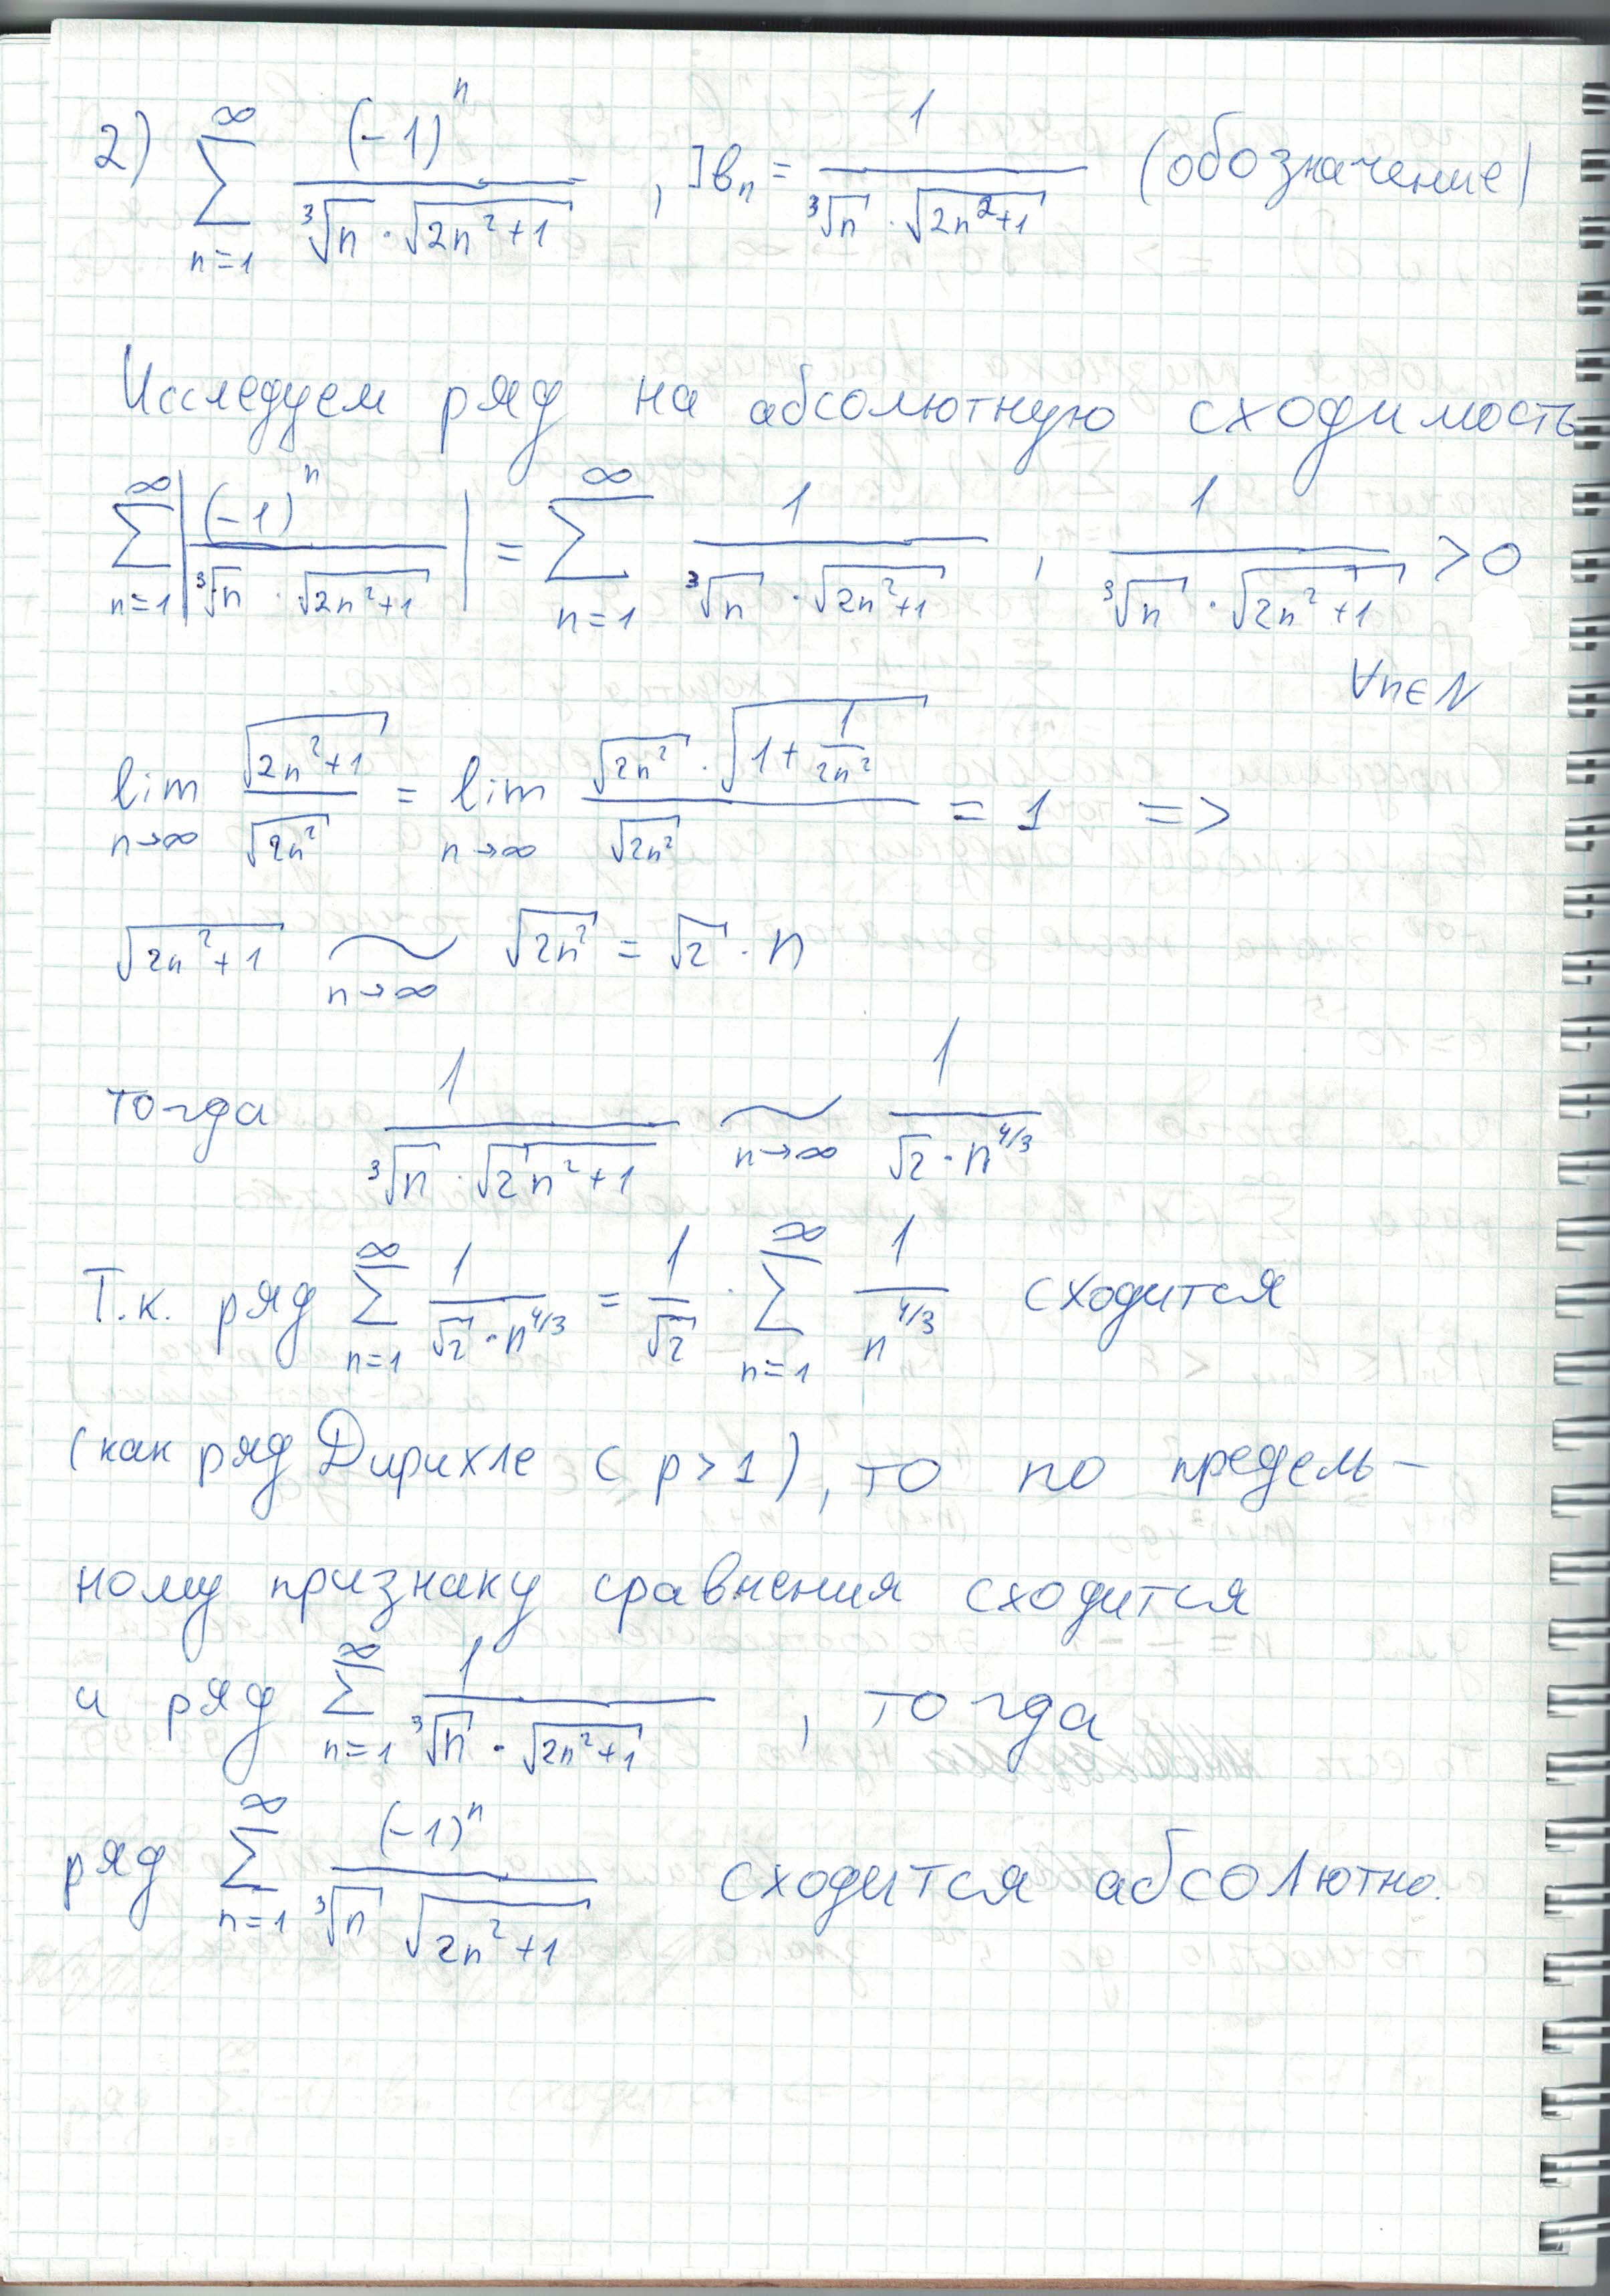 2) $\sum_{n=1}^{\infty} \frac{(-1)^n}{\sqrt[3]{n} \cdot \sqrt{2n^2+1}}$ , ]$b_n = \frac{1}{\sqrt[3]{n} \cdot \sqrt{2n^2+1}}$ (обозначение)
Исследуем ряд на абсолютную сходимость
$\sum_{n=1}^{\infty} \left| \frac{(-1)^n}{\sqrt[3]{n} \cdot \sqrt{2n^2+1}} \right| = \sum_{n=1}^{\infty} \frac{1}{\sqrt[3]{n} \cdot \sqrt{2n^2+1}}$ , $\frac{1}{\sqrt[3]{n} \cdot \sqrt{2n^2+1}} > 0$
$\forall n \in N$
$\lim_{n \to \infty} \frac{\sqrt{2n^2+1}}{\sqrt{2n^2}} = \lim_{n \to \infty} \frac{\sqrt{2n^2} \cdot \sqrt{1+\frac{1}{2n^2}}}{\sqrt{2n^2}} = 1$ =>
$\sqrt{2n^2+1} \underset{n \to \infty}{\sim} \sqrt{2n^2} = \sqrt{2} \cdot n$
тогда $\frac{1}{\sqrt[3]{n} \cdot \sqrt{2n^2+1}} \underset{n \to \infty}{\sim} \frac{1}{\sqrt{2} \cdot n^{4/3}}$
Т.к. ряд $\sum_{n=1}^{\infty} \frac{1}{\sqrt{2} \cdot n^{4/3}} = \frac{1}{\sqrt{2}} \cdot \sum_{n=1}^{\infty} \frac{1}{n^{4/3}}$ сходится
(как ряд Дирихле с p>1), то по предель-
ному признаку сравнения сходится
и ряд $\sum_{n=1}^{\infty} \frac{1}{\sqrt[3]{n} \cdot \sqrt{2n^2+1}}$ , тогда
ряд $\sum_{n=1}^{\infty} \frac{(-1)^n}{\sqrt[3]{n} \sqrt{2n^2+1}}$ сходится абсолютно.